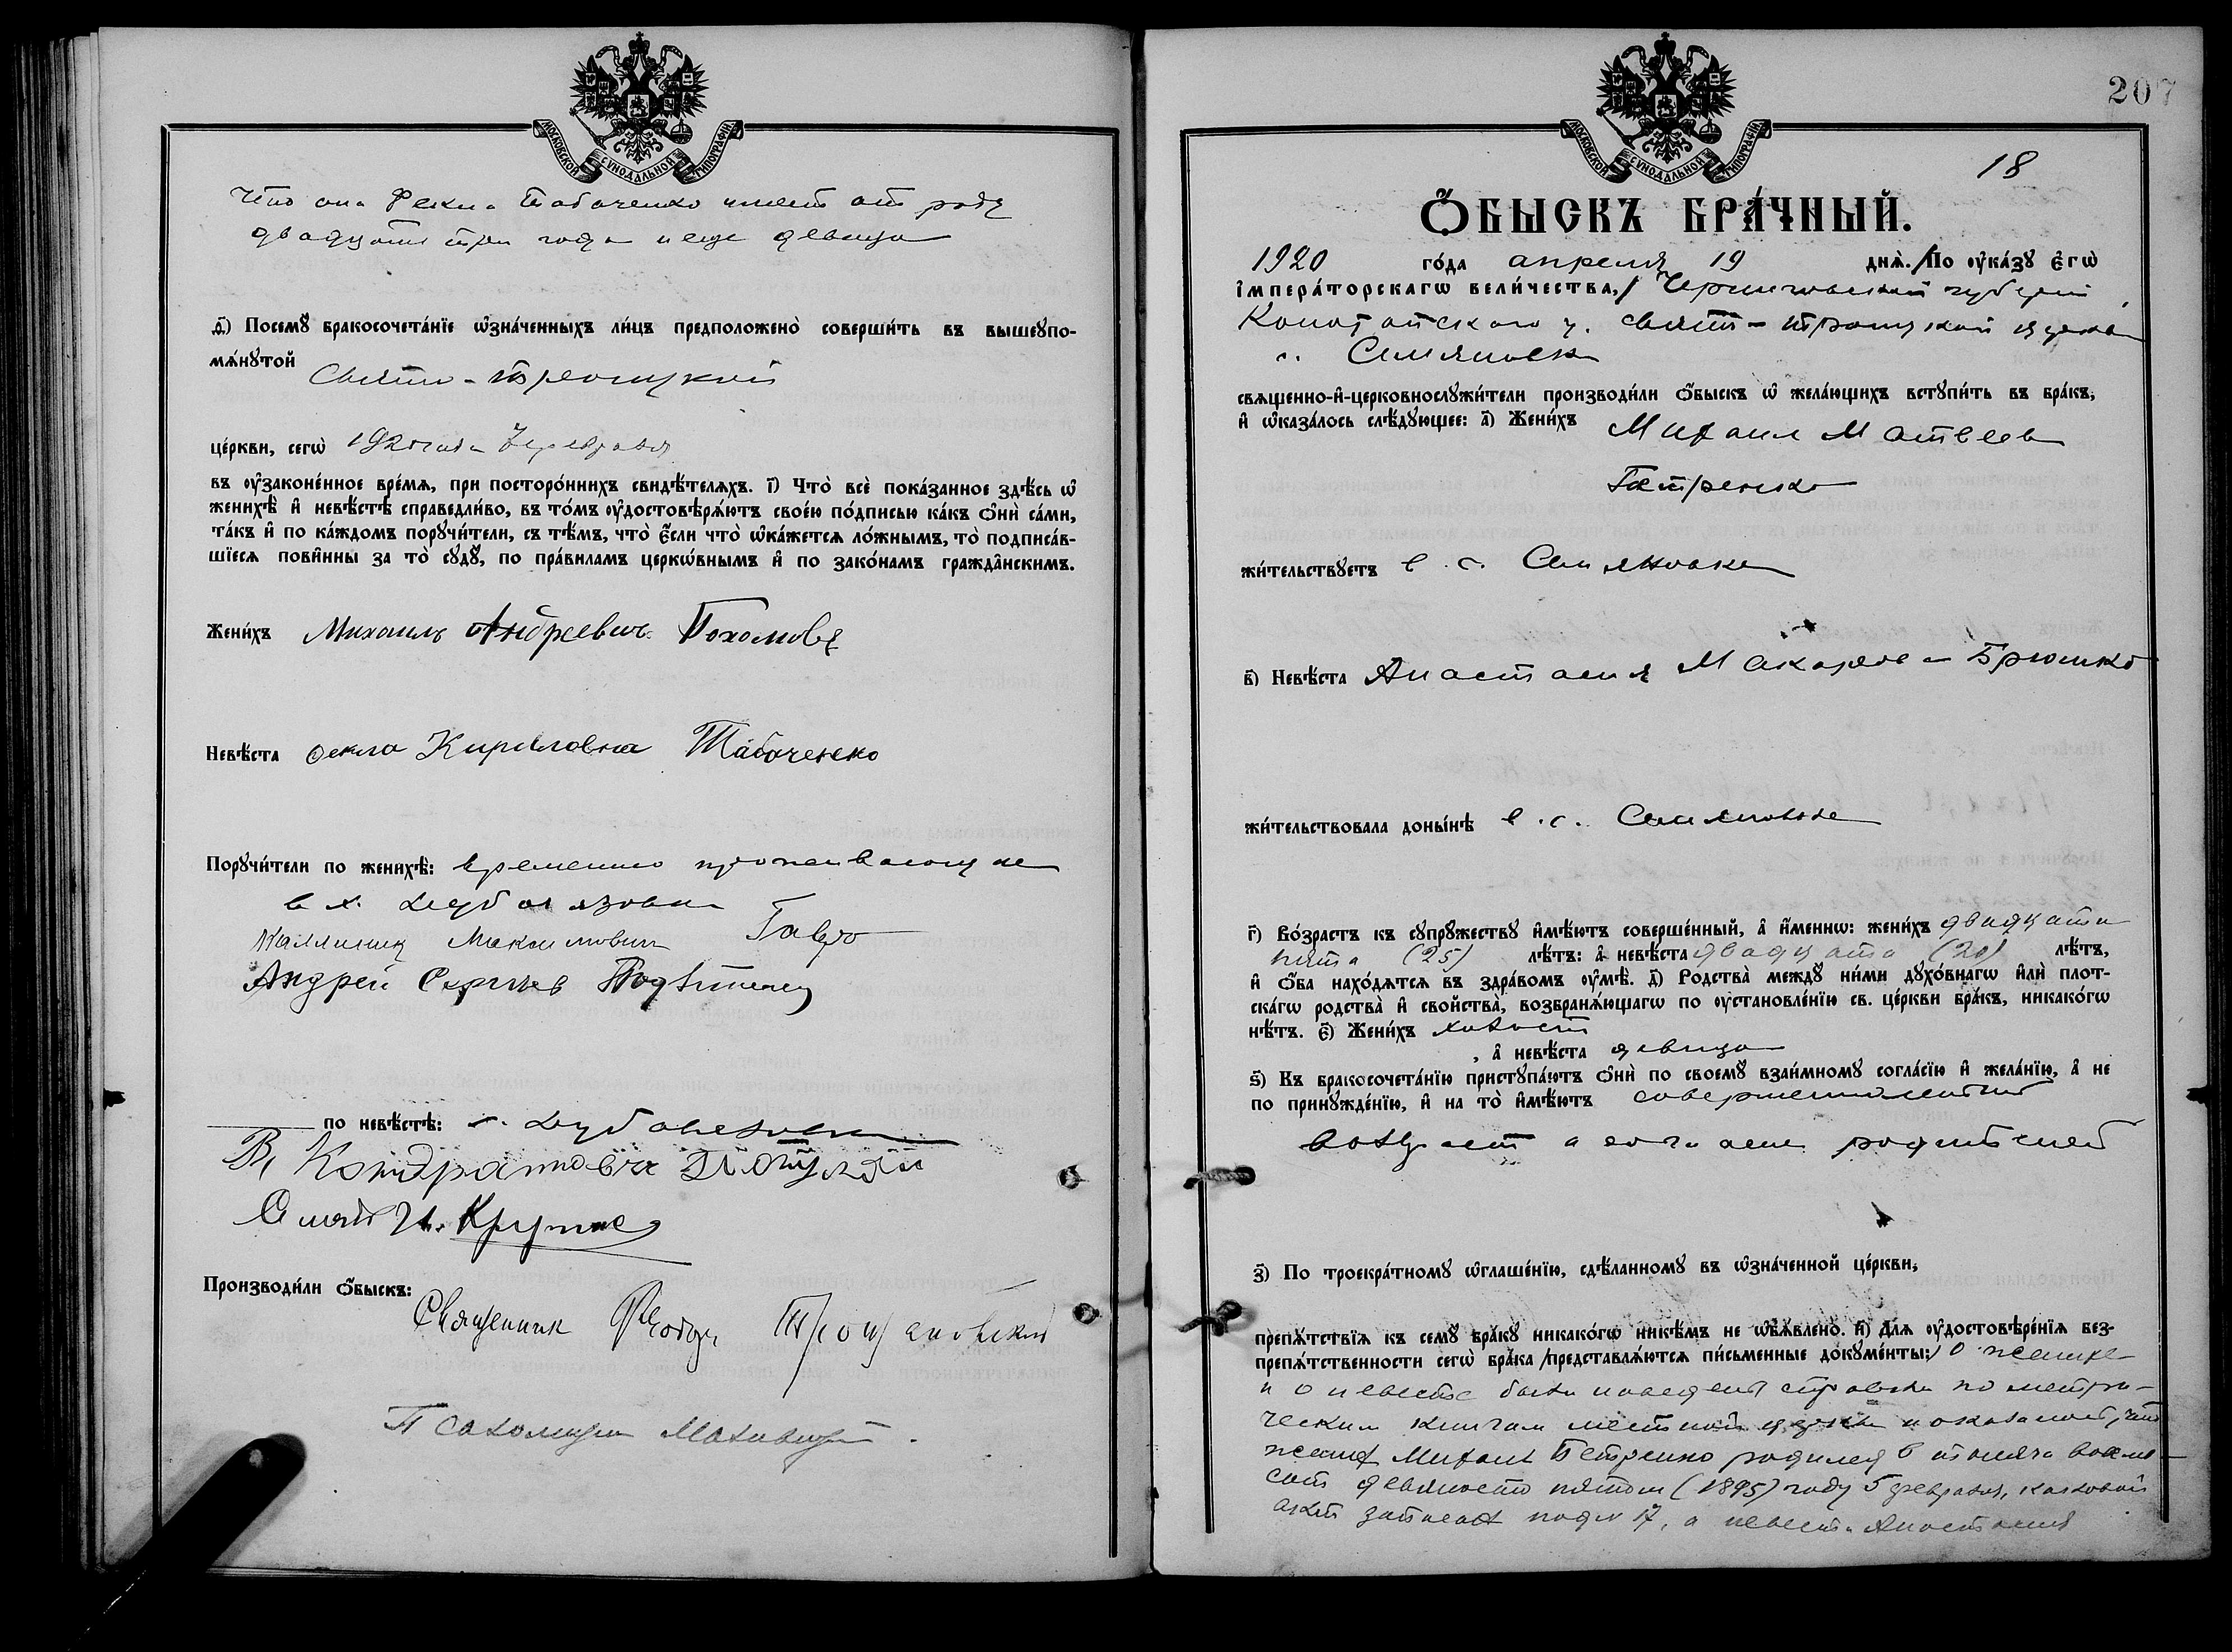 МОСКОВСКОЙ СУНОДАЛЬНОЙ ТИПОГРАФІИ
что она Фекла Табаченко имеет от роду
двадцать три года и еще девица
ѳ҃) Посемꙋ̀ бракосочета́нїе ѡ҆зна́ченныхъ ли́цъ предположено̀ соверши́ть въ вышеꙋпо-
мѧ́нꙋтой
Свято-Троицкой
це́ркви, сегѡ̀ 1920 года Февраля
въ ᲂу҆законе́нное вре́мѧ, при посторо́ннихъ свидѣ́телѧхъ. і҃) Что̀ всѐ пока́занное здѣ́сь ѡ҆
женихѣ̀ и҆ невѣ́стѣ справедли́во, въ то́мъ ᲂу҆достовѣрѧ́ютъ свое́ю по́дписью ка́къ ѻ҆нѝ са́ми,
та́къ и҆ по ка́ждомъ порꙋчи́тели, съ тѣ́мъ, что̀ є҆́сли что̀ ѡ҆ка́жетсѧ ло́жнымъ, то̀ подписа́в-
шїесѧ пови́нны за то̀ сꙋдꙋ̀, по пра́виламъ церко́внымъ и҆ по зако́намъ гражда́нскимъ.
Жени́хъ Михаилъ Андреевичъ
Невѣ́ста Фекла Кириловна Табаченко
Порꙋчи́тели по женихѣ̀: временно проживающие
в х.
Каллиник Максимович
Андрей
по невѣ́стѣ: с.
Кондратович
И.
Производи́ли ѻ҆́быскъ:
Священник
Псаломщик
207
МОСКОВСКОЙ СУНОДАЛЬНОЙ ТИПОГРАФІИ
18
Ѻ҆́БЫСКЪ БРА́ЧНЫЙ.
1920 го́да апреля 19 днѧ̀. /По ᲂу҆ка́зꙋ Є҆гѡ̀
І҆мпера́торскагѡ вели́чества,/ Черниговской губернии,
Конотопского у. Свято-Троицкой церкви
с. Семяновки
свѧщенно-и҆-церковнослꙋжи́тели производи́ли ѻ҆́быскъ ѡ҆ жела́ющихъ встꙋпи́ть въ бра́къ,
и҆ ѡ҆каза́лось слѣ́дꙋющее: а҃) Жени́хъ Михаил Матвеев
Петренко
жи́тельствꙋетъ в с. Семяновке
в҃) Невѣ́ста Анастасия Макарова
жи́тельствовала доны́нѣ в с. Семяновке
г҃) Во́зрастъ къ сꙋпрꙋ́жествꙋ и҆мѣ́ютъ соверше́нный, а҆ и҆́менно: жени́хъ двадцати
пяти (25) лѣ́тъ: а҆ невѣ́ста двадцати (20) лѣ́тъ,
и҆ ѻ҆́ба нахо́дѧтсѧ въ здра́вомъ ᲂу҆мѣ̀. д҃) Родства̀ междꙋ̀ ни́ми дꙋхо́внагѡ и҆лѝ плот-
ска́гѡ родства̀ и҆ сво́йства̀, возбранѧ́ющагѡ по ᲂу҆становле́нїю св. це́ркви бра́къ, никако́гѡ
нѣ́тъ. є҃) Жени́хъ холост
, а҆ невѣ́ста девица
ѕ҃) Къ бракосочета́нїю пристꙋпа́ютъ ѻ҆нѝ по своемꙋ̀ взаи́мномꙋ согла́сїю и҆ жела́нїю, а҆ не
по принꙋжде́нїю, и҆ на то̀ и҆мѣ́ютъ совершеннолетний
возраст и согласие родителей
з҃) По троекра́тномꙋ ѡ҆глаше́нїю, сдѣ́ланномꙋ въ ѡ҆зна́ченной це́ркви,
препѧ́тствїѧ къ семꙋ̀ бра́кꙋ никако́гѡ никѣ́мъ не ѡ҆б̾ѧ́влено. и҃) Длѧ ᲂу҆достовѣре́нїѧ без-
препѧ́тственности сегѡ̀ бра́ка /представлѧ́ютсѧ пи́сьменные докꙋме́нты:/ О женихе
и о невесте были наведены справки по метри-
ческим книгам местной церкви и оказалось, что
жених Михаил Петренко родился в тысяча восемь-
сот девяносто пятом (1895) году 5 февраля, каковой
акт записан под № 17, а невеста Анастасия